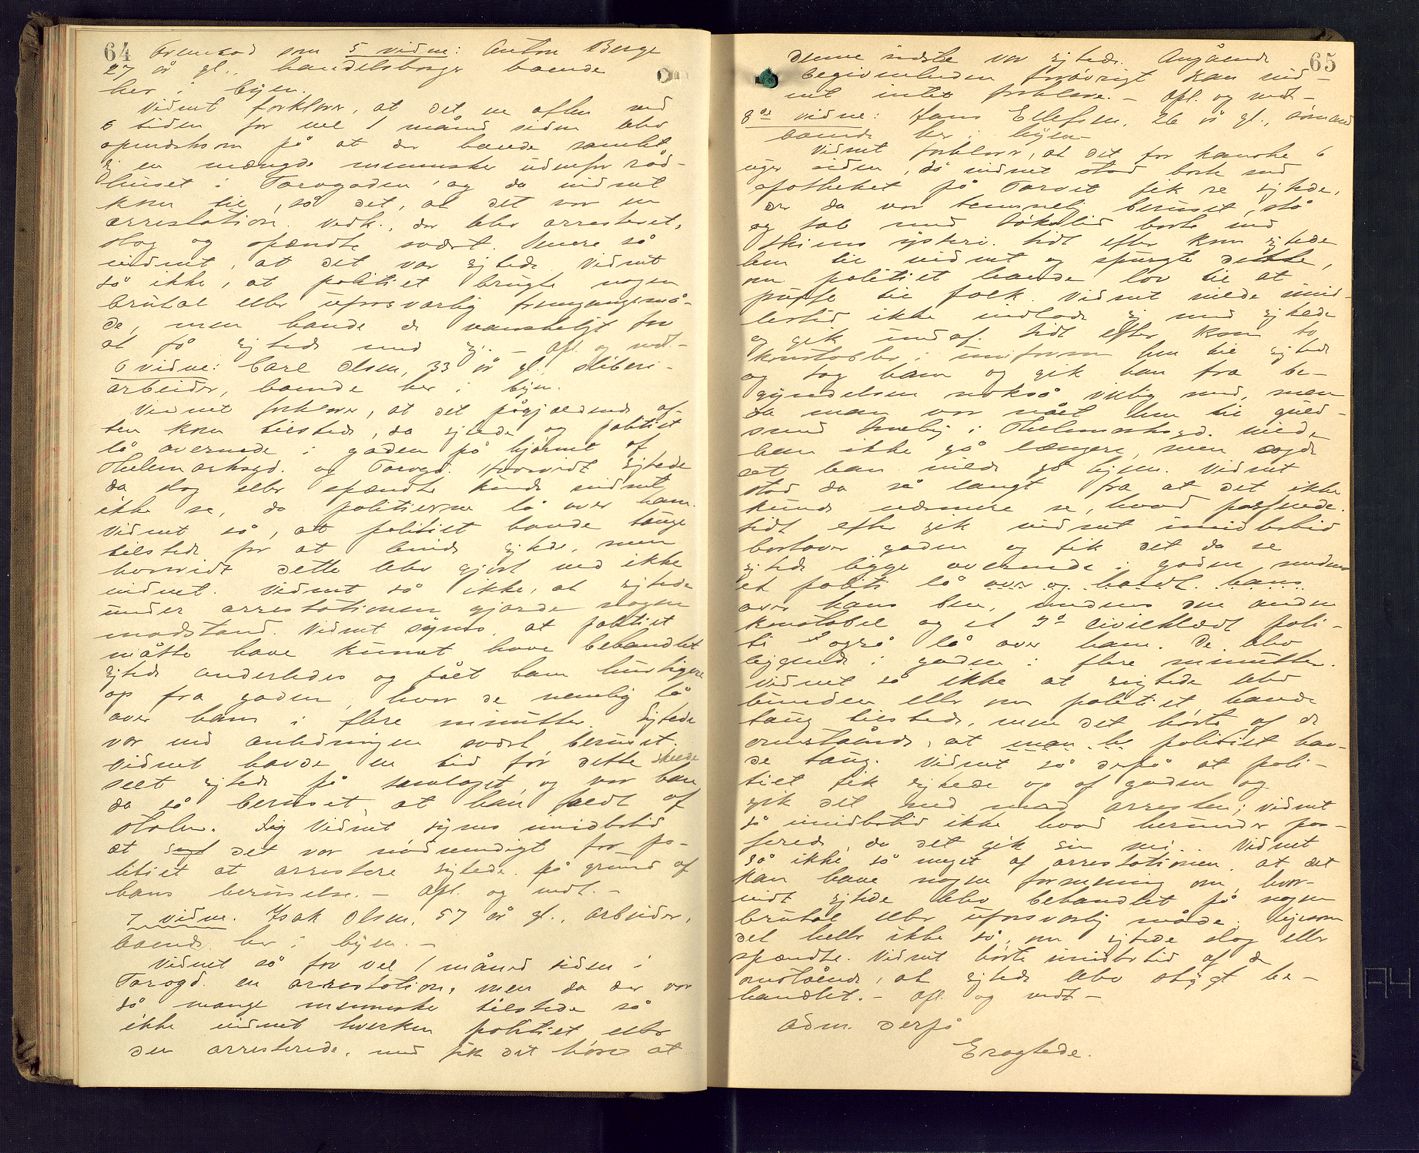 64
Fremstod som 5 vidne: Anton Berge
27 år gl., handelsborger boende
her i byen.
Vidnet forklarer, at det en aften ved
6 tiden for vel 1 måned siden blev
opmerksom på at der havde samlet
sig en mængde mennesker udenfor råd-
huset i Torvgaden, og da vidnet
kom til, så det, at det var en
arrestation. Vedk., der blev arresteret,
slog og spændte svært. Senere så
vidnet, at det var sigtede. Vidnet
så ikke, at politiet brugte nogen
brutal eller uforsvarlig fremgangsmå-
de, men havde det vanskeligt for
at få sigtede med sig. – Opl. og vedt. –
6 vidne: Carl Olsen, 33 år gl. sliberi-
arbeider, boende her i byen.
Vidnet forklarer, at det pågjældende af-
ten kom tilstede, da sigtede og politiet
lå overende i gaden på hjørnet af
Thelemarksgd. og Torvgd. Hvorvidt sigtede
da slog eller spændte kunde vidnet
ikke se, da politierne lå over ham.
Vidnet så, at politiet havde tauge
tilstede for at binde sigtede, men
hvorvidt dette blev gjort ved ikke
vidnet. Vidnet så ikke, at sigtede
under arrestationen gjorde nogen
modstand. Vidnet synes, at politiet
måtte have kunnet have behandlet
sigtede anderledes og fået ham hurtigere
op fra gaden, hvor de nemlig lå
over ham i flere minutter. Sigtede
var ved anledningen svært beruset.
Vidnet havde en tid før dette skede
seet sigtede på samlaget og var han
da så beruset at han faldt af
stolen. Vidnet synes imidlertid
at det var nødvendigt for po-
litiet at arrestere sigtede på grund af
hans beruselse. – Opl. og vedt. –
7 vidne. Isak Olsen, 57 år gl., arbeider,
boende her i byen. –
Vidnet så for vel 1 måned siden i
Torvgd. en arrestation, men da der var
så mange mennesker tilstede så
ikke vidnet hverken politiet eller
den arresterede, med fik det høre at
65
denne sidste var sigtede. Angående
begivenheden forøvrigt kan vid-
net intet forklare. – Opl. og vedt. –
8de vidne: Jens Ellefsen, 26 år gl., sømand
boende her i byen.
Vidnet forklarer, at det for kanske 6
uger siden, då vidnet stod borte ved
apotheket på Torvet fik se sigtede,
der da var temmelig beruset, stå
og tale med borte ved
Skiens ysteri. Lidt efter kom sigtede
hen til vidnet og spurgte dette,
om politiet havde lov til at
puffe til folk. Vidnet vilde imid-
lertid ikke indlade sig med sigtede
og gik ind af. Lidt efter kom to
konstabler i uniform hen til sigtede
og tog ham og gik han fra be-
gyndelsen nokså villig med, men
da man var nået hen til guld-
smed i Thelemarksgd. vilde
han ikke gå længere, men sagde
at han vilde gå hjem. Vidnet
stod da så langt fra at det ikke
kunde nærmere se, hvad passerede.
Lidt efter gik vidnet imidlertid
bortover gaden og fik det da se
sigtede ligge overende i gaden, medens
et politi lå over og holdt hans
over hans ben, medens den anden
konstabel og et 3die civilklædt poli-
ti også lå over ham. De blev
liggende i gaden i flere minutter.
Vidnet så ikke at sigtede blev
bunden eller om politiet havde
taug tilstede, men det hørte af de
omstående, at politiet hav-
de taug. Vidnet så derpå at poli-
tiet fik sigtede op af gaden og
gik det med mod arresten; vidnet
så imidlertid ikke hvad herunder pas-
serede, da det gik sin vei. Vidnet
så ikke så meget af arrestationen, at det
kan have nogen formening om, hvor-
vidt sigtede blev behandlet på nogen
brutal eller uforsvarlig måde, ligesom
det heller ikke så, om sigtede slog eller
spændte. Vidnet hørte imidlertid af de
omstående, at sigtede blev stygt be-
handlet. – Opl. og vedt. –
Adm. derpå
Eragtede.